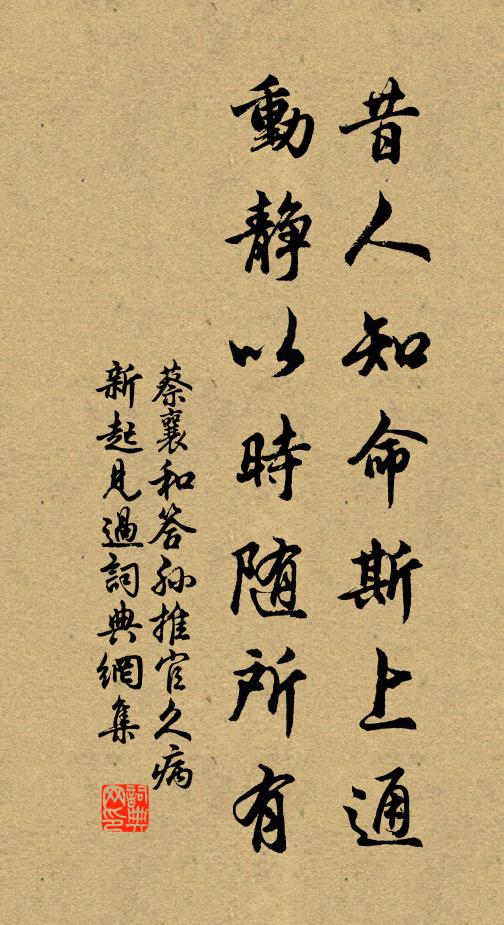 昔人知命斯上通
動靜以時随所有
蔡襄和答孫推官久病
新起見過詞典網集
詞典网印